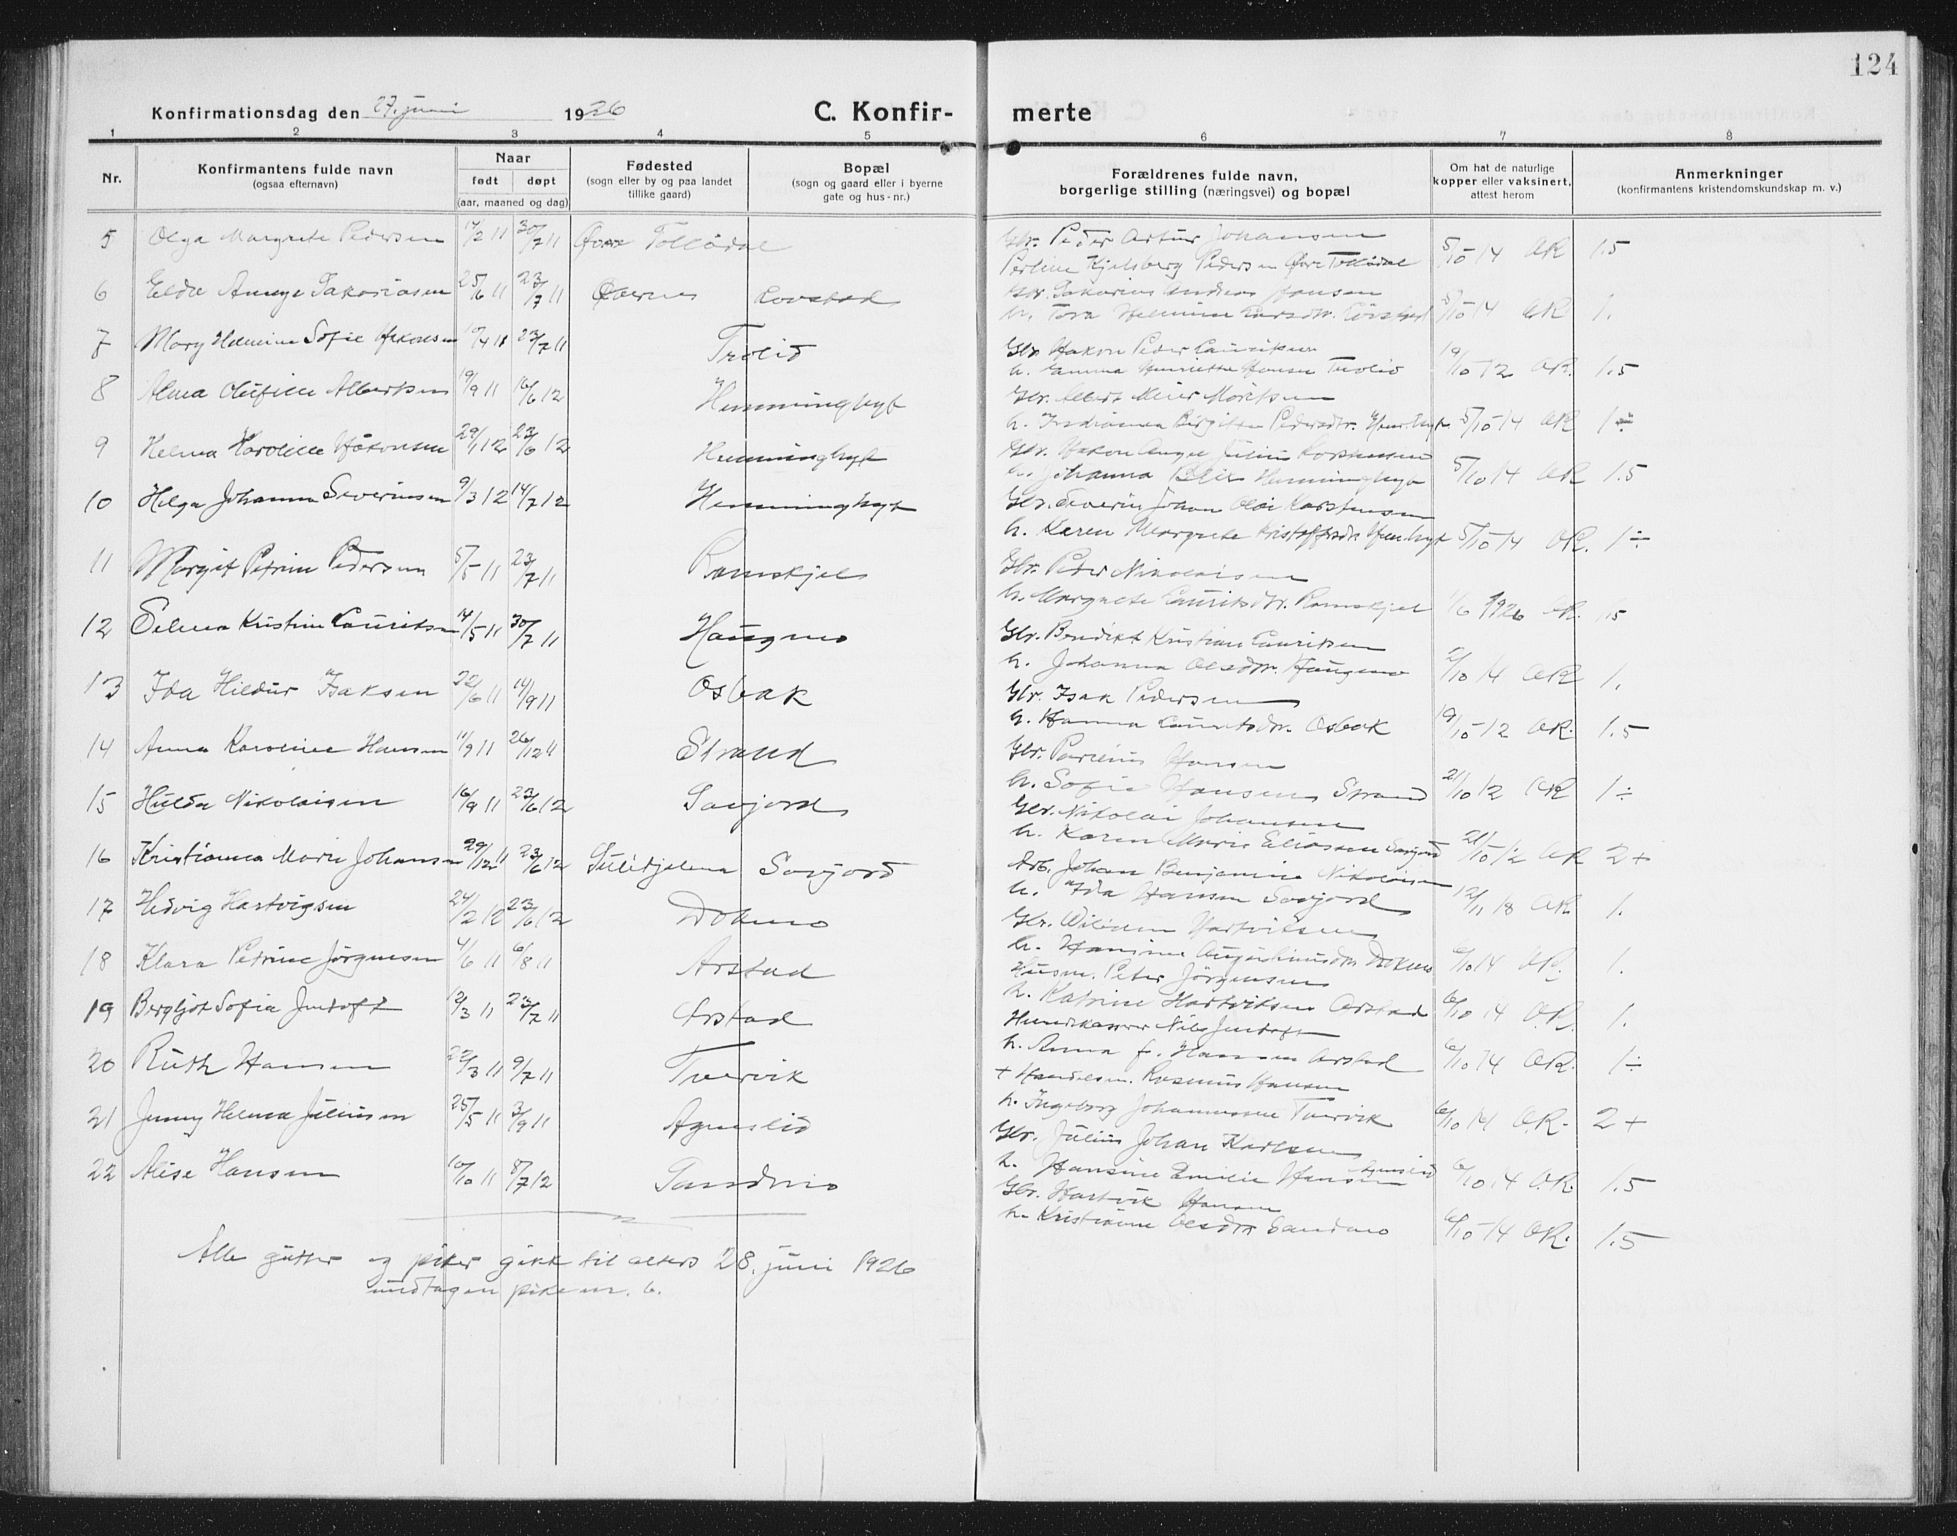 124
Konfirmationsdag den 27. juni 1926 C. Konfir- merte
1 2 3 4 5 6 7 8
Nr. Konfirmantens fulde navn (ogsaa efternavn) Naar født døpt (aar, maaned og dag) Fødested (sogn eller by og paa landet tillike gaard) Bopæl (sogn og gaard eller i byerne gate og hus-nr.) Forældrenes fulde navn, borgerlige stilling (næringsvei) og bopæl Om hat de naturlige kopper eller vaksinert, attest herom Anmerkninger (konfirmantens kristendomskundskap m. v.)
5 Olga Margrete Pedersen 17/2 11 30/7 11 Øvre Tollådal Gbr. Peder Artur Johansen
Perline Kjelsberg Pedersen Øvre Tollådal 5/10 14 OR 1.5
6 25/6 11 23/7 11 Gbr. Sakarias Andreas Hansen
h. Tora 5/10 14 OR 1.
7 Mary Helmine Sofie Hakonsen 10/4 11 23/7 11 Trolid Gbr. Hakon Peder Lauritsen
h. Emma Henriette Hansen Trolid 19/10 12 OR. 1.5
8 Alma Albertsen 19/9 11 16/6 12 Hemminghyt Gbr. Albert Meier
h. Birgitte Pedersdtr. 5/10 14 OR 1÷
9 Helma Karoline Håkonsen 29/1 12 23/6 12 Hemminghyt Gbr. Hakon Angel Julius
h. Johanna Hemminghyt 5/10 14 OR 1.5
10 Helga Johanna Severinsen 9/3 12 14/7 12 Hemminghyt Gbr. Severin Johan Olai Karstensen
h. Karen Margrete 5/10 14 OR. 1÷
11 Margit Petrine Pedersen 5/5 11 23/7 11 Ramskjel Gbr. Peder Nikolaisen
h. Margrete Lauritsdtr. Ramskjel 1/6 1926 OR. 1,5
12 Selma Kristine Lauritsen 14/5 11 30/7 11 Haugmo Gbr. Benedikt Kristian Lauritsen
h. Johanna Olsdtr. Haugmo 2/10 14 OR 1.
13 Ida Hildur Isaksen 22/6 11 14/9 11 Osbak Gbr. Isak Pedersen
h. Hanna Lauritsdtr. Osbak 19/10 12 OR. 1.5
14 Anna Karoline Hansen 11/9 11 26/12 11 Strand Gbr. Parelius Hansen
h. Sofie Hansen Strand 21/10 12 OR 1÷
15 Hulda Nikolaisen 16/9 11 23/6 12 Savjord Gbr. Nikolai Johansen
h. Karen Marie Eliassen Savjord 21/10 12 OR 2+
16 Kristianna Marie Johansen 29/12 11 23/6 12 Sulitjelma Savjord Arb. Johan Benjamin Nikolaisen
h. Ida Hansen Savjord 12/11 18 OR 1.
17 Hedvig Hartvigsen 24/2 12 23/6 12 Dokmo Gbr. Wilhelm Hartviksen
h. Hansine Augustinusdtr. Dokmo 6/10 14 OR. 1.
18 Klara Petrine Jörgensen 4/6 11 6/8 11 Arstad Husm. Peter Jörgensen
h. Katrine Hartviksen Arstad 6/10 14 O.R. 1.
19 Bergljot Sofia Jentoft 12/3 11 23/7 11 Arstad Nils Jentoft
h. Anna f. Hansen Arstad 6/10 14 OR. 1÷
20 Ruth Hansen 22/3 11 9/7 11 Tvervik + Handelsm. Rasmus Hansen
h. Ingeborg Johannessen Tvervik 6/10 14 O.R. 2+
21 Jenny Helma Juliussen 25/5 11 3/9 11 Agnslid Gbr. Julius Johan Karlsen
h. Hansine Emilie Hansen Agnslid 6/10 14 O.R. 1.5
22 Alise Hansen 10/10 11 8/7 12 Sandmo Gbr. Hartvik Hansen
h. Kristianne Olsdtr Sandmo 6/10 14 OR. 1.5
Alle gutter og piker gikk til alters 28. juni 1926
undtagen pike nr. 6.